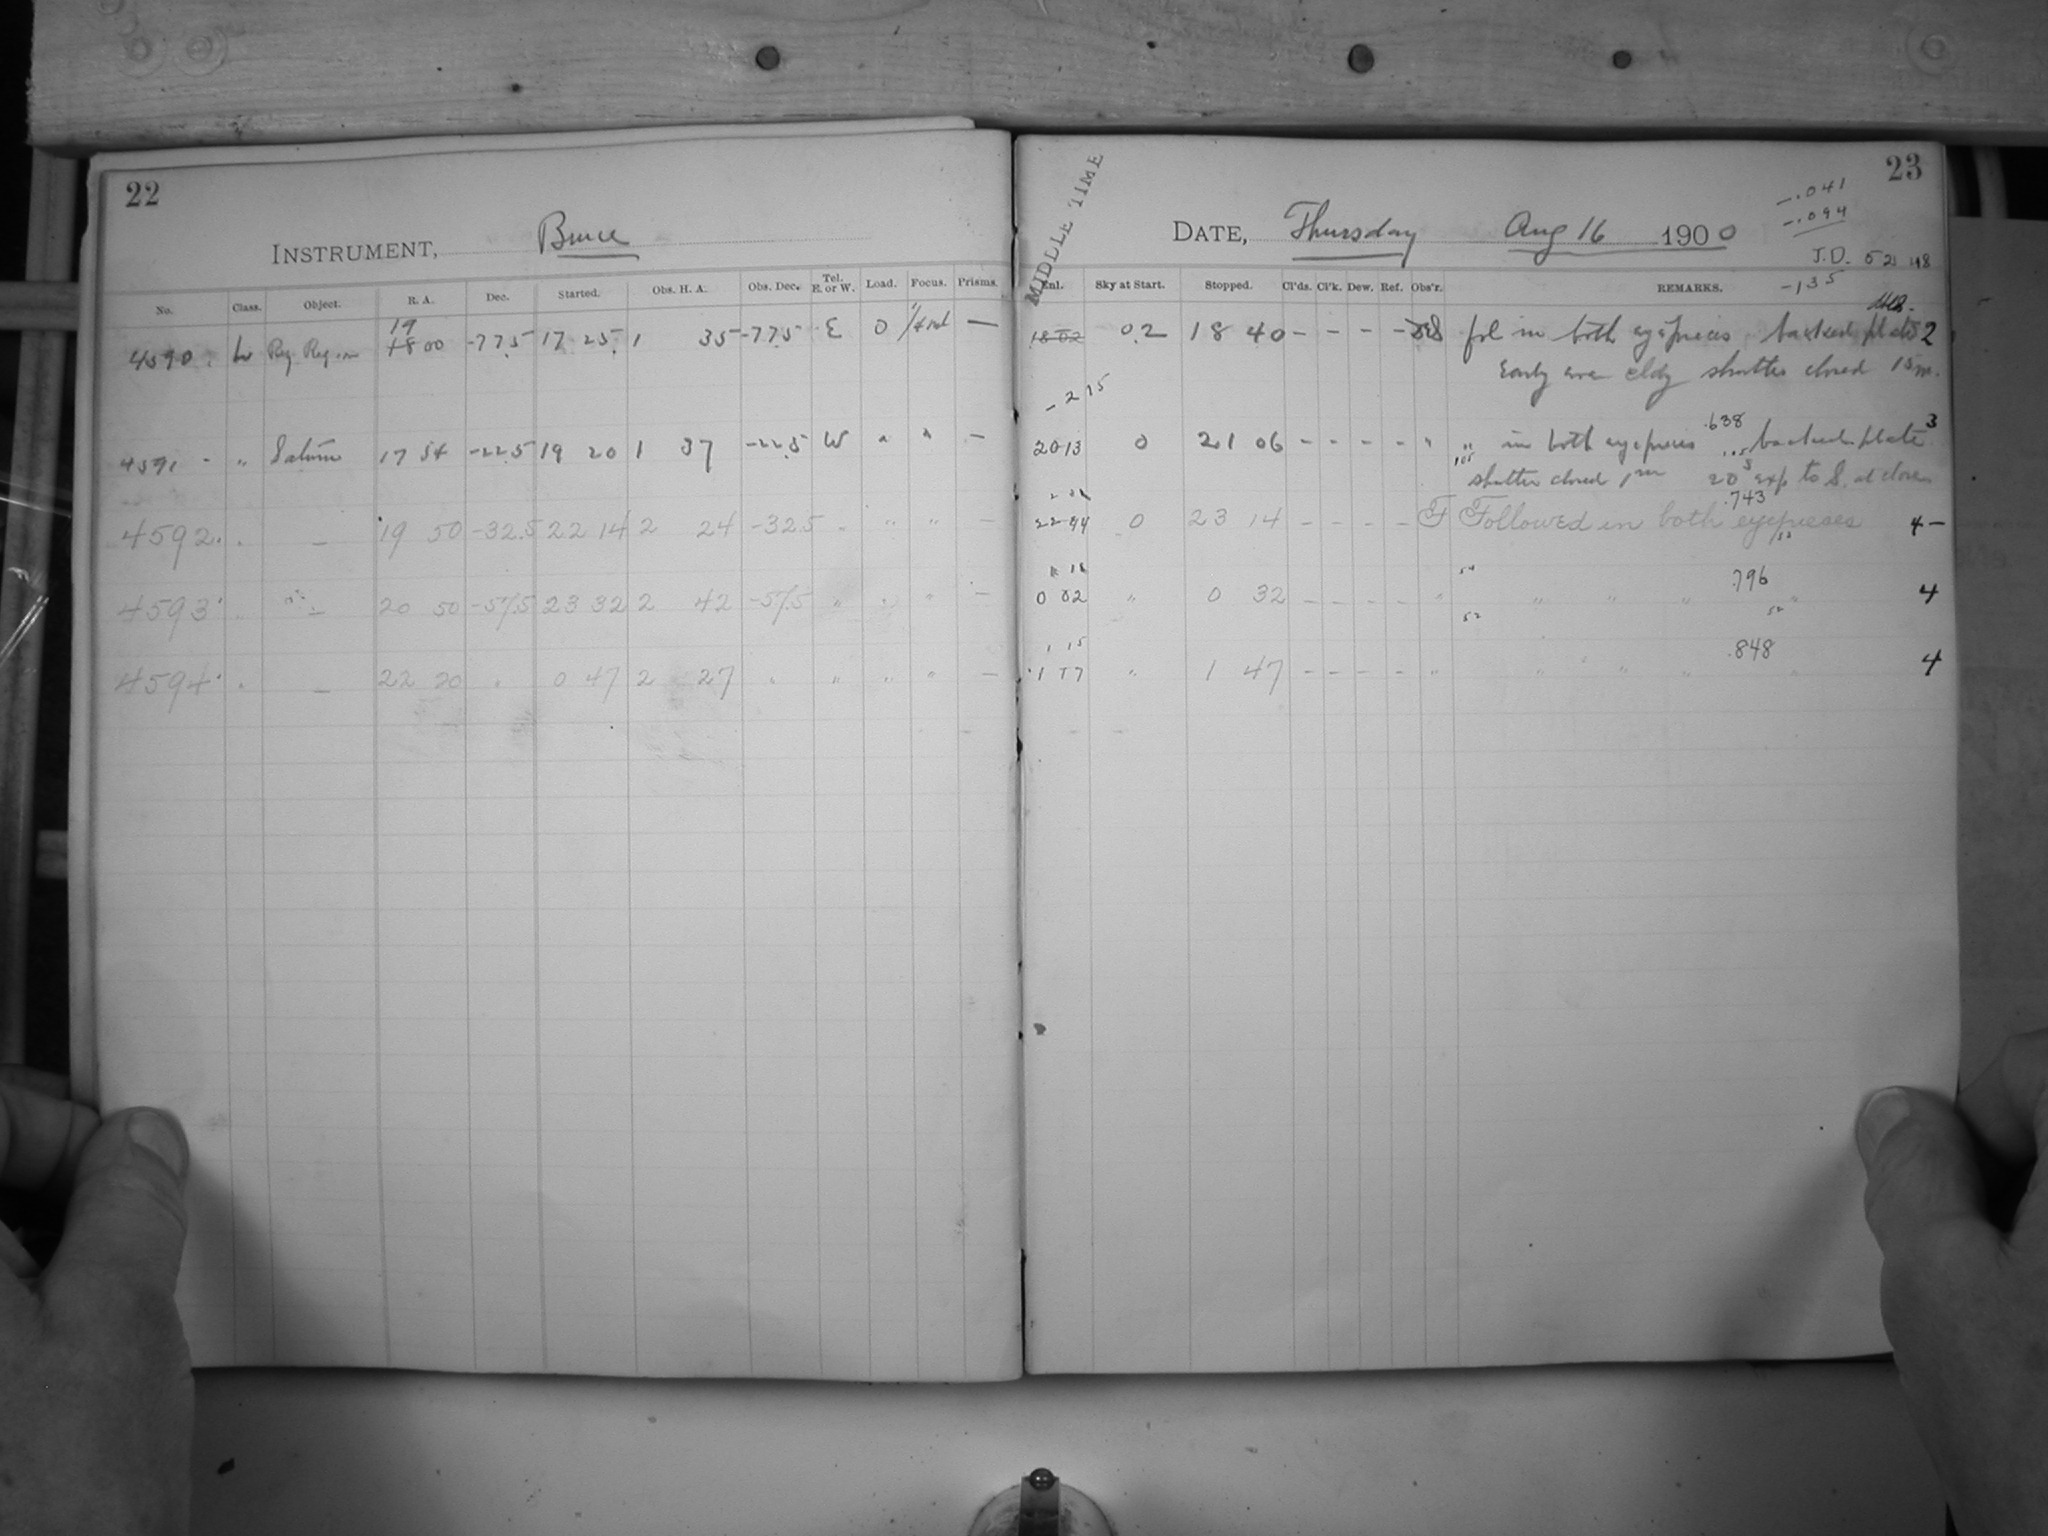 22
INSTRUMENT, Bruce
No. Class. Object. R. A. Dec. Started. Obs. H. A. Obs. Dec. Tel. E. or W. Load. Focus. Prisms.
19
4590 L Reg. Region 18 00 -77.5 17 25 1 35 -77.5 E 0 —
4591 " Saturn 17 54 -22.5 19 20 1 37 -22.5 W " " —
4592 " — 19 50 -32.5 22 14 2 24 -32.5 " " " —
4593 " — 20 50 -57.5 23 32 2 42 -57.5 " " " —
4594 " — 22 20 " 0 47 2 27 " " " " —
23
MIDDLE TIME
-.041
-.094
DATE, Thursday Aug 16 1900
J.D. 5248
-135
Enl. Sky at Start. Stopped. Cl'ds. Cl'k. Dew. Ref. Obs'r. REMARKS.
18 02 0.2 18 40 - - - - fol in both eyepieces backed plate 2
Early eve cldy shutter closed 15m.
- 2 15
.638
20 13 0 21 06 - - - - " " in both eyepieces backed plate 3
105 shutter closed 1m 20s exp to S. at close
.743
22 44 0 23 14 - - - - F Followed in both eyepieces 4 -
52
.796
0 02 " 0 32 - - - - " " " " " 4
52 52
1 15 .848
1 17 " 1 47 - - - - " " " " " 4